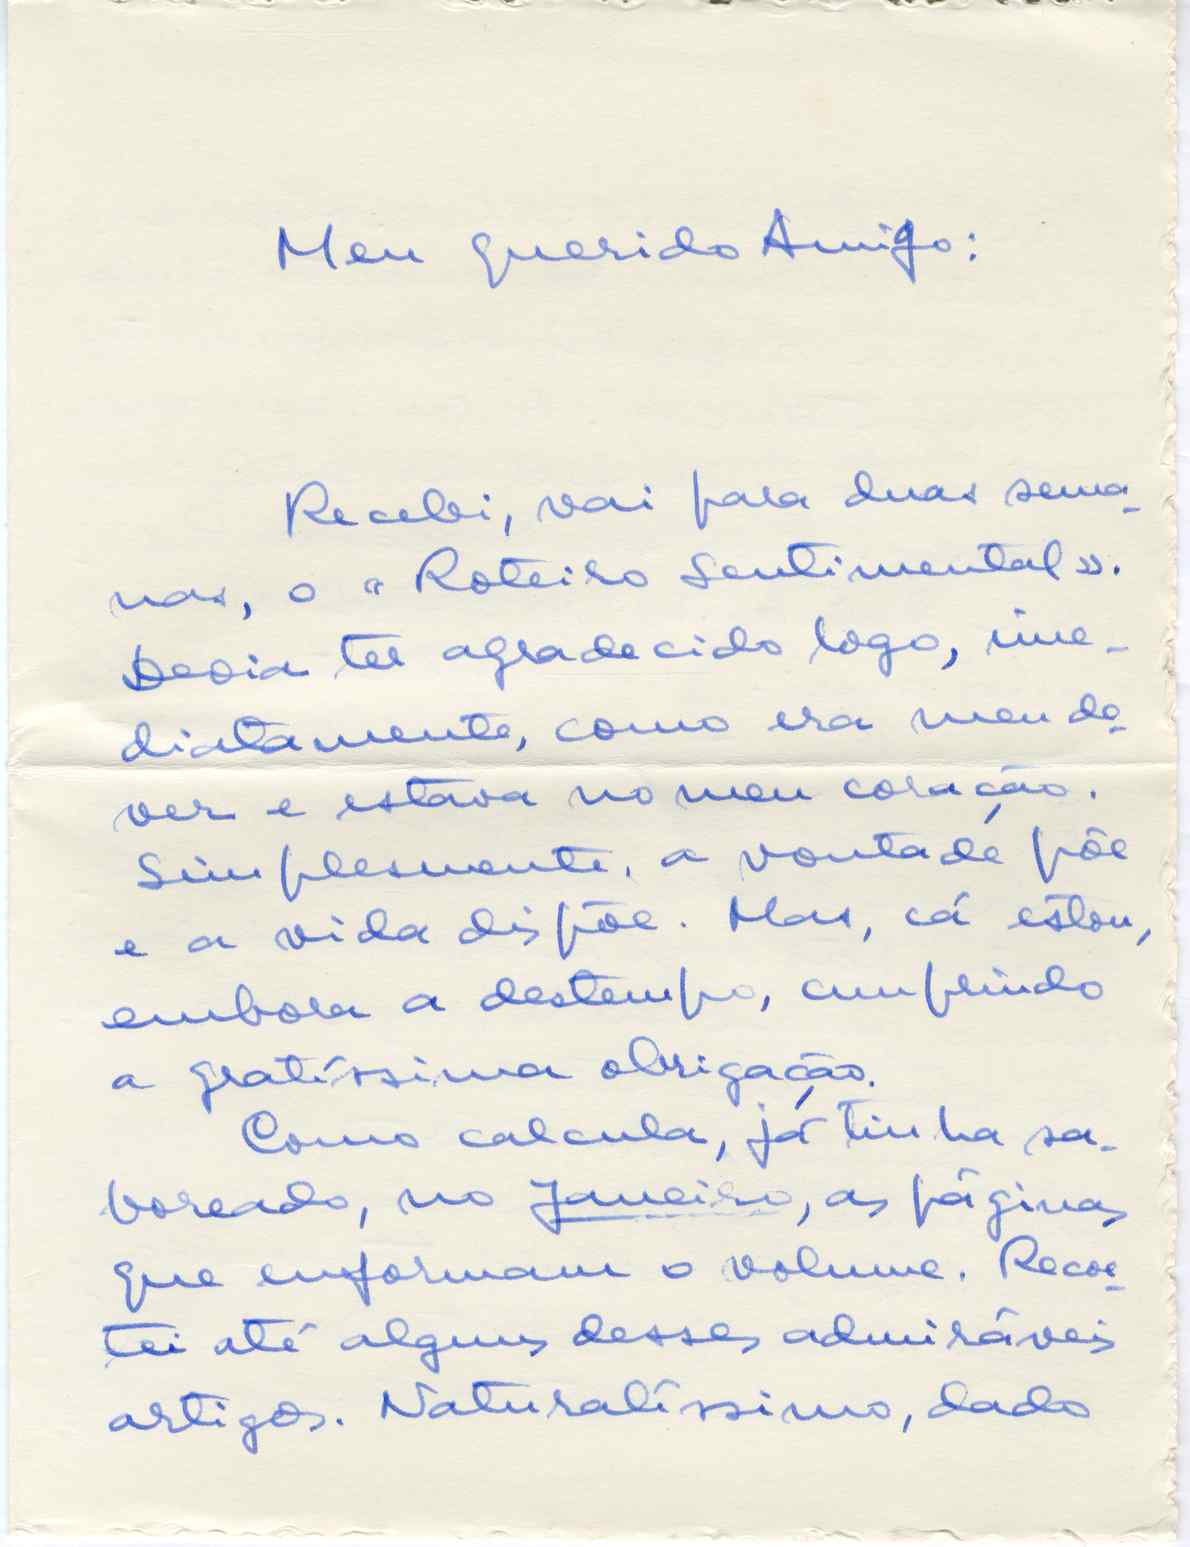 Meu querido Amigo:
Recebi, vai para duas sema-
nas, o "Roteiro Sentimental».
Devia ter agradecido logo, ime-
diatamente, como era meu de-
ver e estava no meu coração.
Simplesmente, a vontade põe
e a vida dispõe. Mas, cá estou,
embora a destempo, cumprindo
a gratíssima obrigação.
Como calcula, já tinha sa-
boreado, no Janeiro, as páginas
que enformam o volume. Recor-
tei até alguns desses admiráveis
artigos. Naturalíssimo, dado